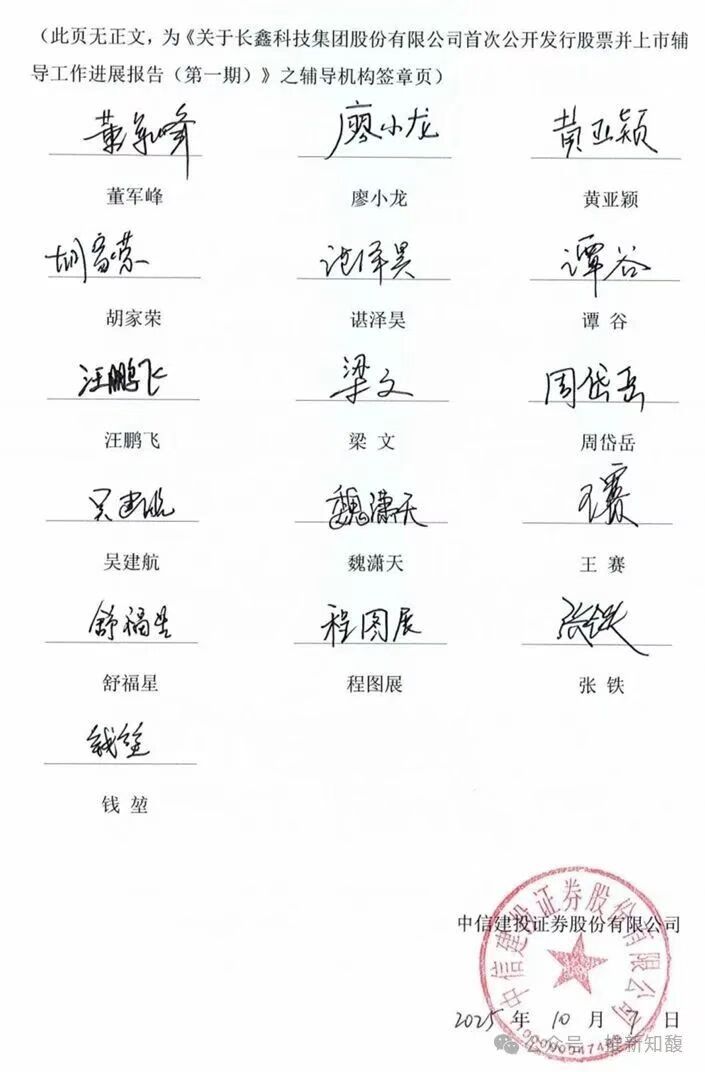 （此页无正文，为《关于长鑫科技集团股份有限公司首次公开发行股票并上市辅
导工作进展报告（第一期）》之辅导机构签章页）
董军峰 廖小龙 黄亚颖
董军峰 廖小龙 黄亚颖
胡家荣 谌泽昊 谭谷
胡家荣 谌泽昊 谭 谷
汪鹏飞 梁文 周岱岳
汪鹏飞 梁 文 周岱岳
吴建航 魏潇天 王赛
吴建航 魏潇天 王 赛
舒福星 程图展 张铁
舒福星 程图展 张 铁
钱堃
钱 堃
中信建投证券股份有限公司
中信建投证券股份有限公司
2025 年 10 月 7 日
公众号 · 推新知馥